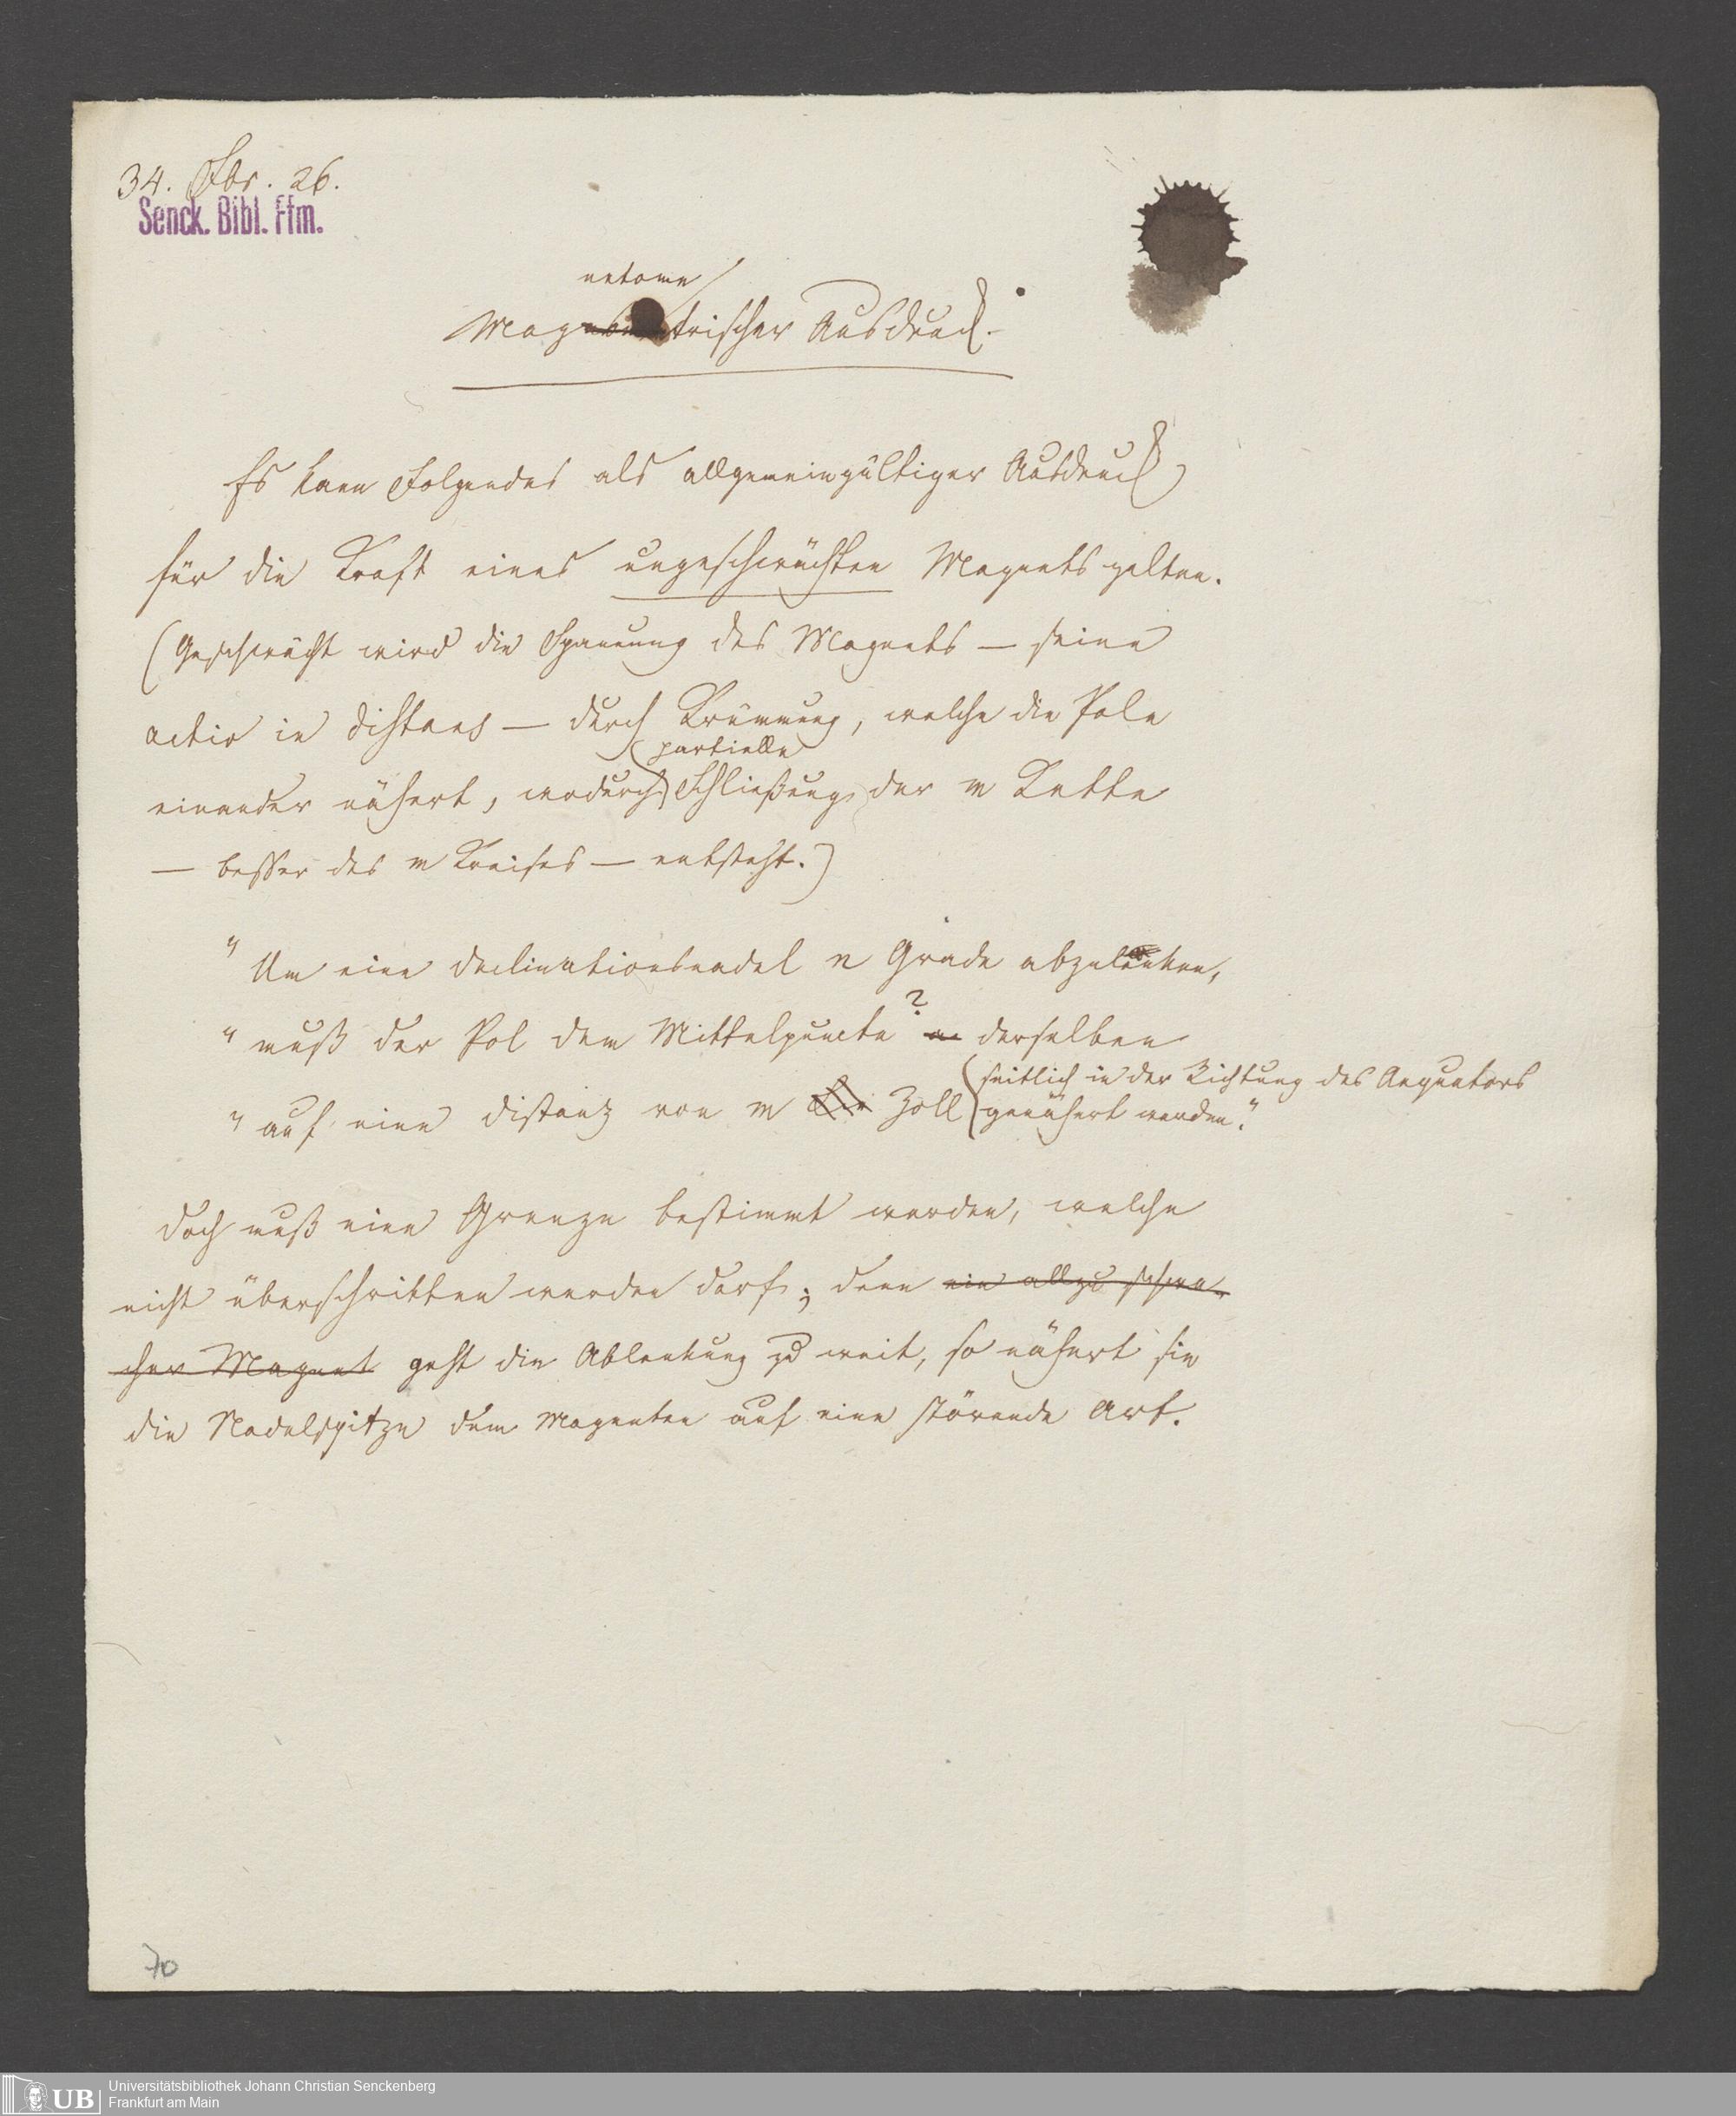 34. Fbr. 26.
Senck. Bibl. Ffm.
netome
Magtrischer Ausdruck.
Es kann Folgendes als allgemeingültiger Ausdruck
für die Kraft eines ungeschwächten Magnets gelten.
(Geschwächt wird die Spannung des Magnets — seine
actio in distans — durch Krümmung, welche die Pole
partielle
einander nähert, wodurch Schließung der m Kette
— besser des m Kreises — entsteht.)
"Um eine Declinationsnadel n Grade abzulenken,
" muß der Pol dem Mittelpuncte ? derselben
seitlich in der Richtung des Aequators
" auf eine Distanz von m Zoll genähert werden."
Doch muß eine Grenze bestimmt werden, welche
nicht überschritten werden darf; denn ein allzu schwa-
cher Magnet geht die Ablenkung zu weit, so nähert sie
die Nadelspitze dem Magneten auf eine störende Art.
70
UB
Universitätsbibliothek Johann Christian Senckenberg
Frankfurt am Main